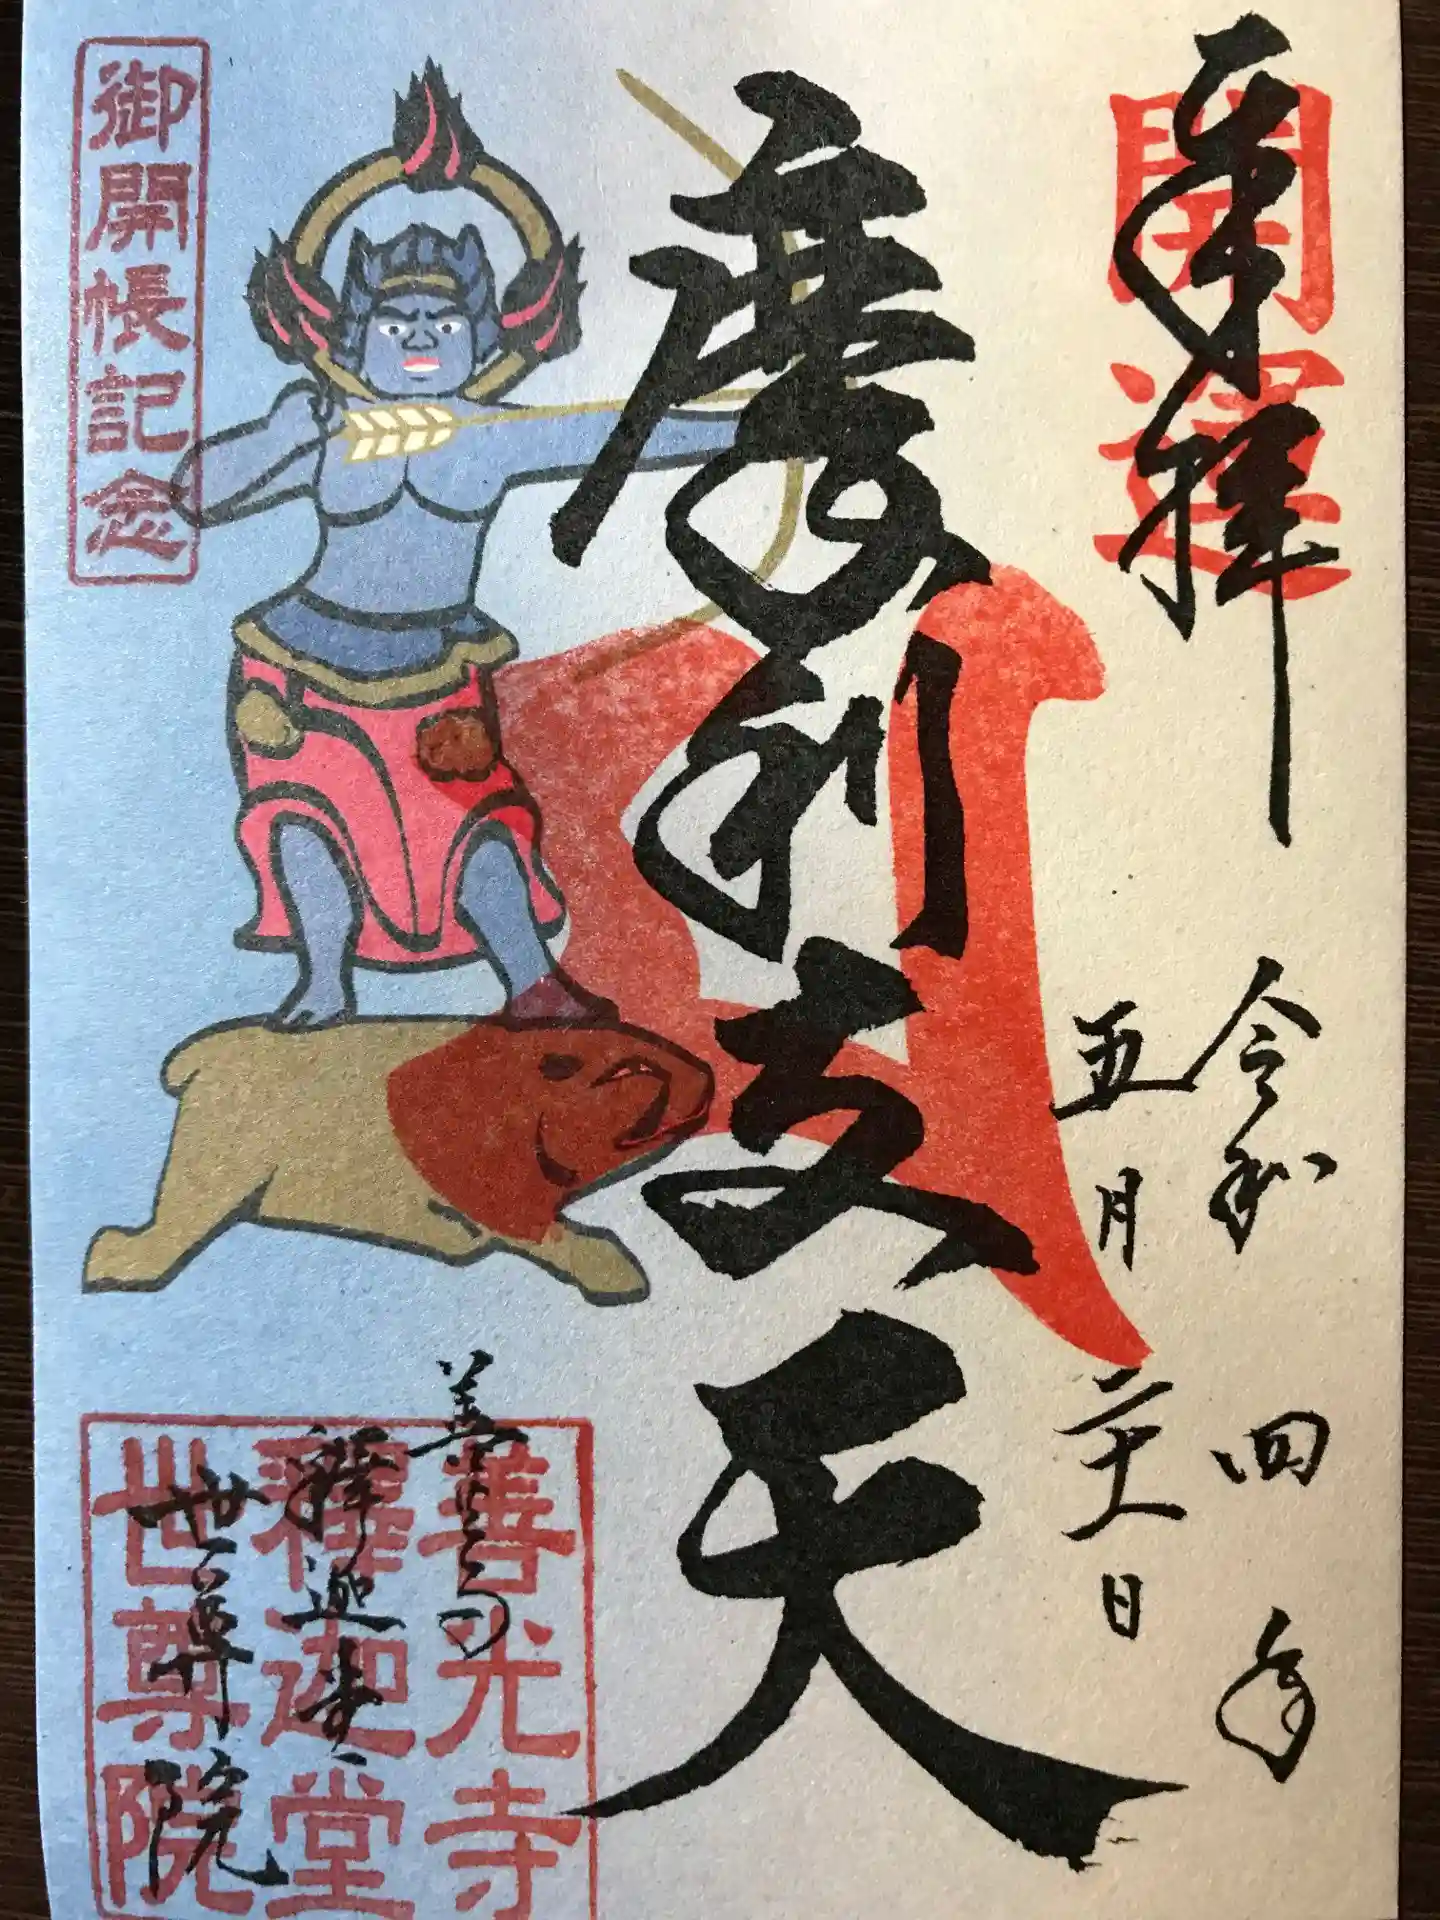 奉拝
開運
令和四年
五月二十一日
摩利支天
御開帳記念
善光寺
釋迦堂
世尊院
善光寺
釋迦堂
世尊院